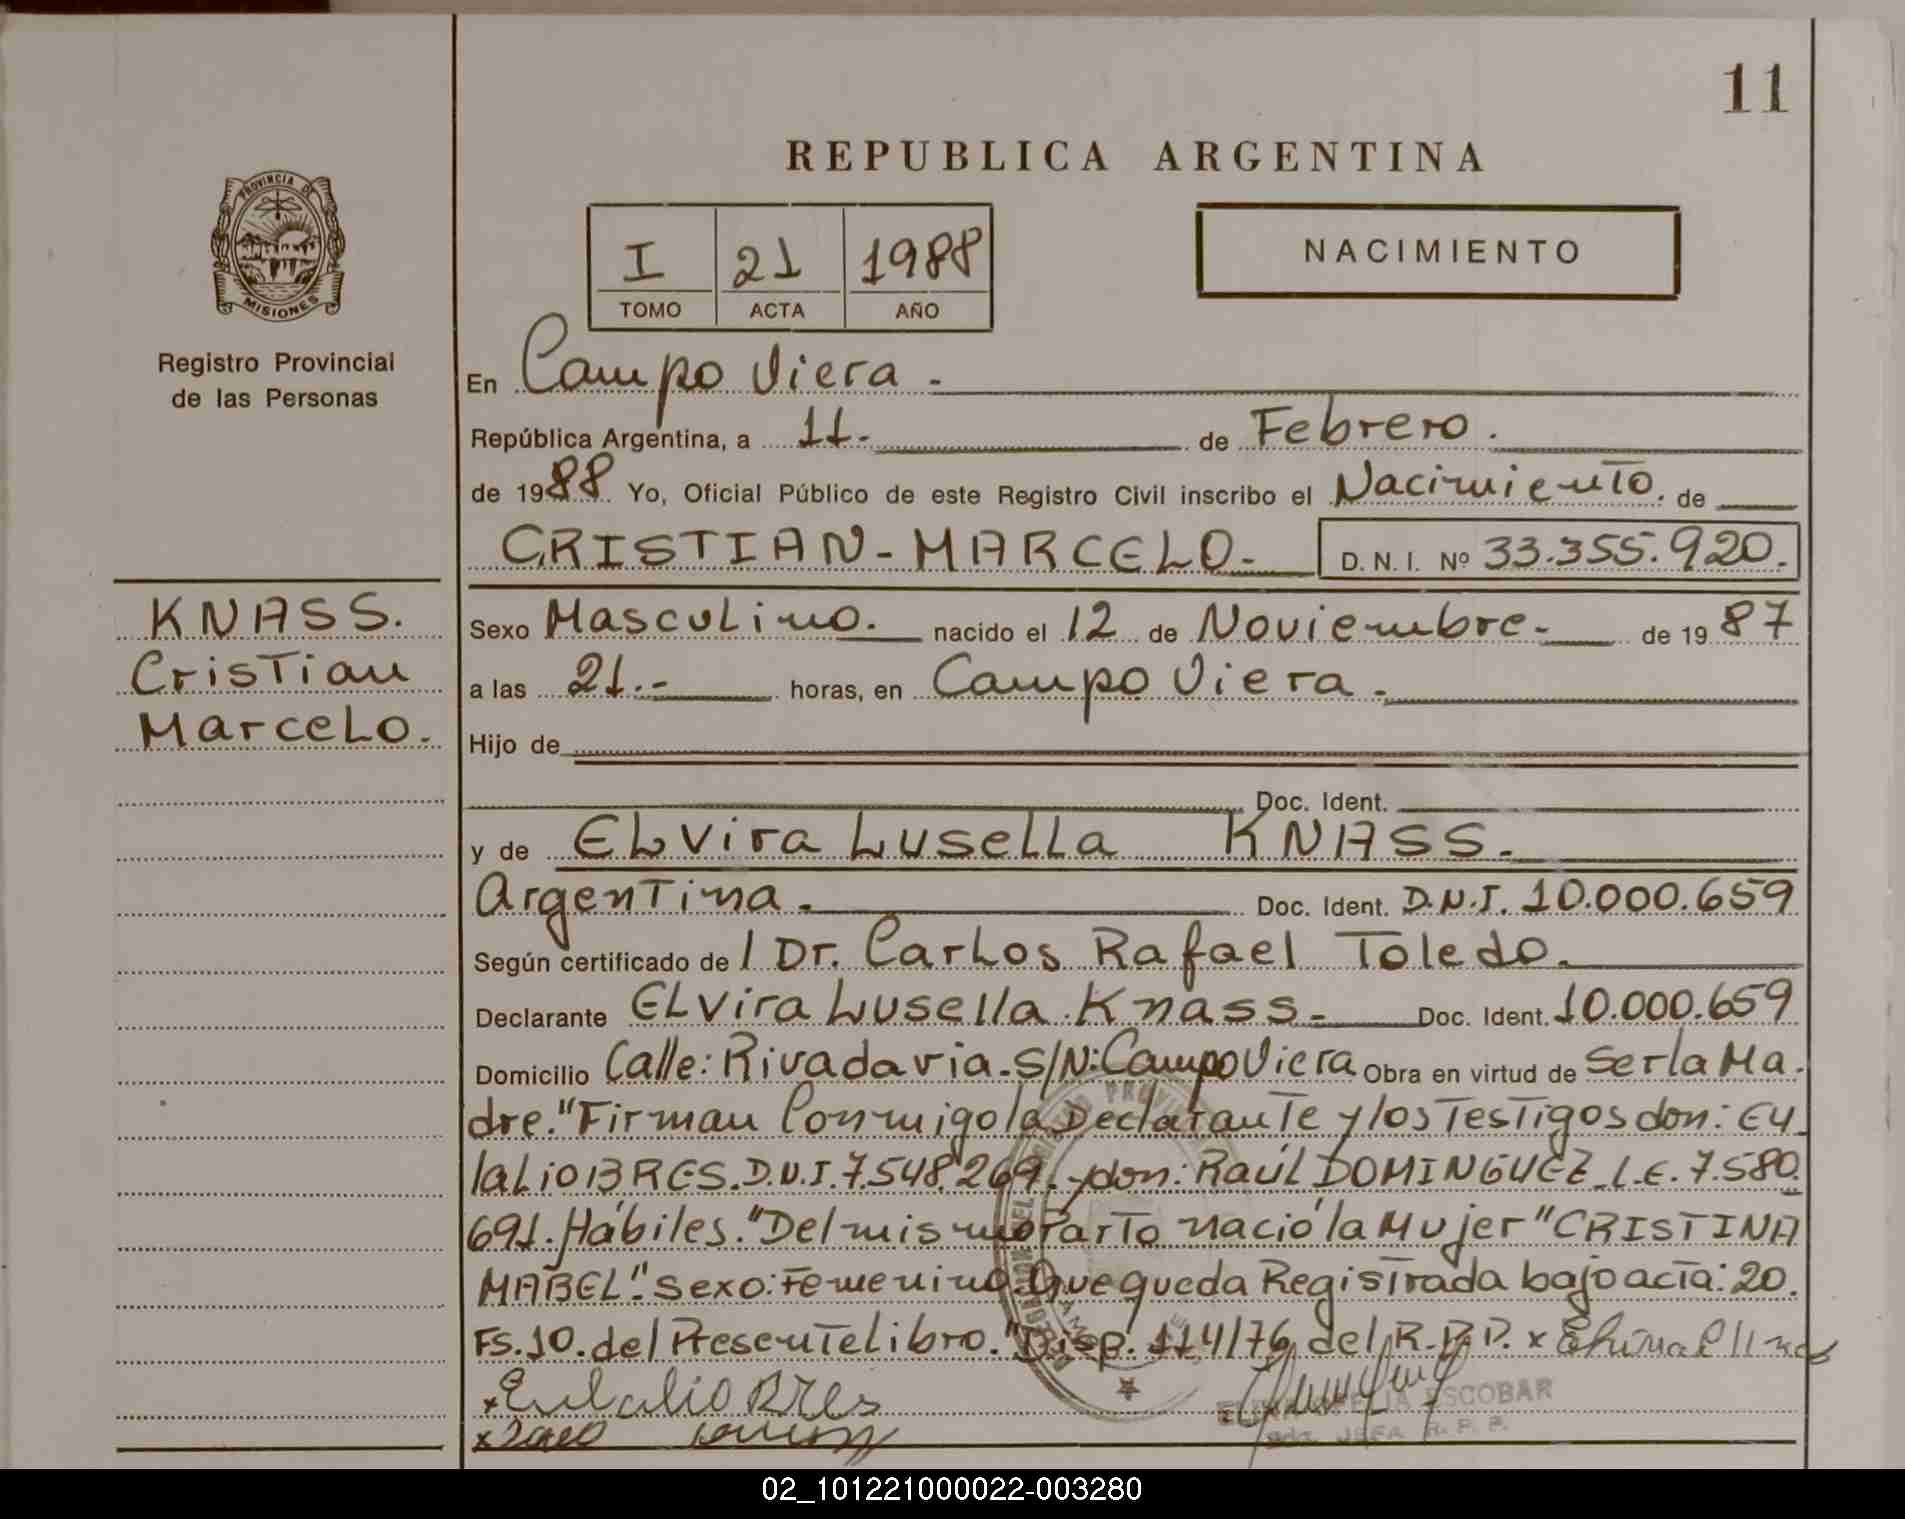 11
REPUBLICA ARGENTINA
PROVINCIA DE
MISIONES
Registro Provincial
de las Personas
I 21 1988
TOMO ACTA AÑO
NACIMIENTO
En Campo Viera.-
República Argentina, a 11.- de Febrero.
de 1988 Yo, Oficial Público de este Registro Civil inscribo el Nacimiento. de
CRISTIAN-MARCELO.- D. N. I. Nº 33.355.920.
KNASS.
Cristian
Marcelo.
Sexo Masculino. nacido el 12 de Noviembre.- de 1987
a las 21.- horas, en Campo Viera.
Hijo de
Doc. Ident.
y de ELvira Lusella KNASS.
Argentina. Doc. Ident. D.N.I. 10.000.659
Según certificado de / Dr. Carlos Rafael Toledo.
Declarante ELvira Lusella Knass.- Doc. Ident. 10.000.659
Domicilio Calle: Rivadavia.S/N: Campo Viera Obra en virtud de Ser la Ma.
dre."Firman Conmigo la Declarante y los Testigos don: EU
laLio BRES.D.N.I. 7.548.269.-y don: RAÚL DOMINGUEZ L.E. 7.580.
691. Hábiles."Del mismo Parto nació la Mujer "CRISTINA
MABEL". Sexo: Femenino. Que queda Registrada bajo acta: 20.
Fs.10. del Presente Libro."Disp. 114/76 del R.P.P. x
x Eulalio Bres
ESCOBAR
JEFA R. P. P.
02_101221000022-003280